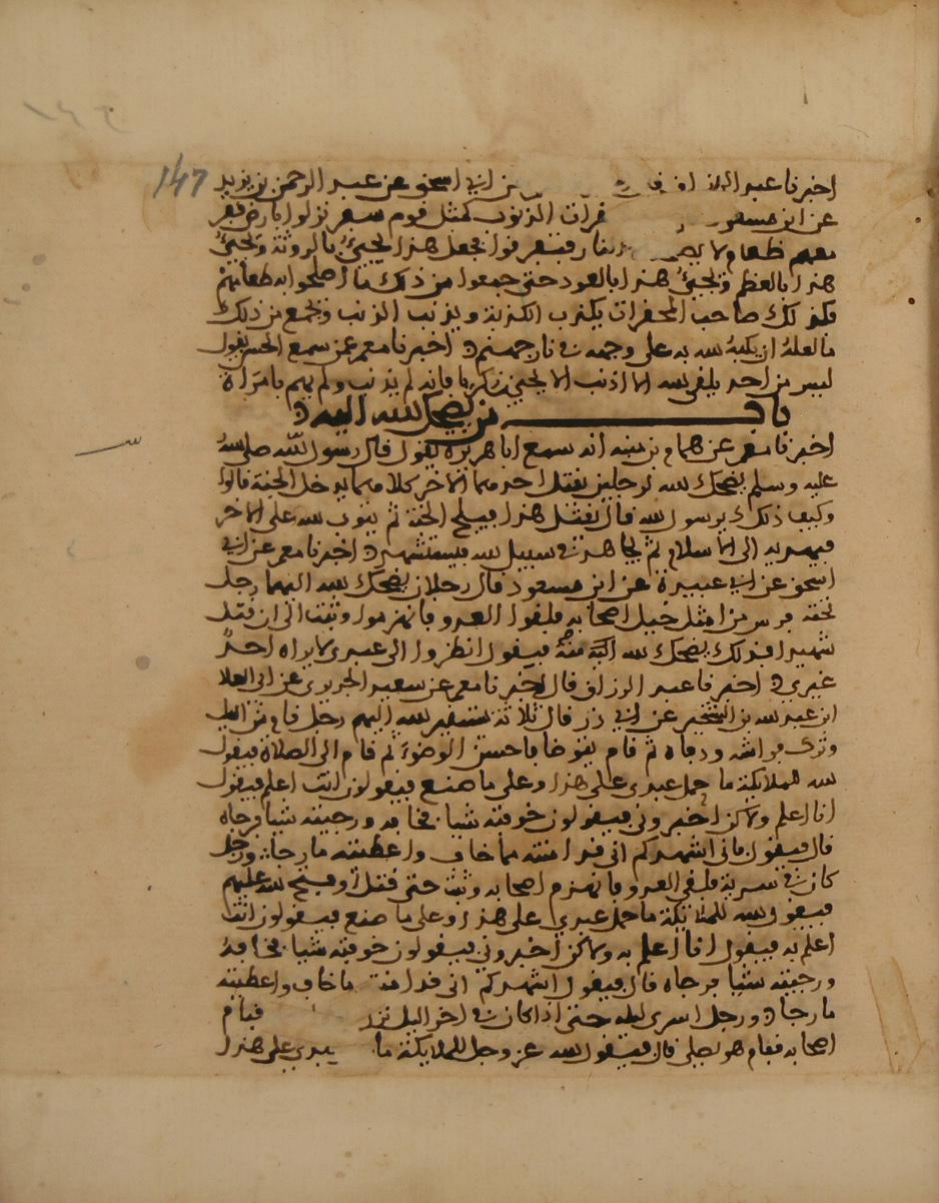 147
اخبرنا عبد الرزاق عن ابي اسحق عن عبد الرحمن بن يزيد
عن ابن مسعود قرات الذنوب كمثل قوم سفر نزلوا بارض قفر
معهم طعام ولا النار فتفرقوا فجعل هذا يجيئ بالروثة ويجيئ
هذا بالعظم ويجيئ هذا بالعود حتى جمعوا من ذلك ما اصلحوا به طعامهم
فكذلك صاحب المحقرات يكذب الكذبة ويذنب الذنب ويجمع من ذلك
ما لعله ان يكبه الله به على وجهه في نار جهنم اخبرنا معمر عمن سمع الحسن يقول
ليس من احد يلقى الله الا اذنب الا يحيى بن زكريا فانه لم يذنب ولم يهم بامراة
باب من يضحك الله اليه
اخبرنا معمر عن همام بن منبه انه سمع ابا هريرة يقول قال رسول الله صلى الله
عليه وسلم يضحك الله لرجلين يقتل احدهما الاخر كلاهما يدخل الجنة قالوا
وكيف ذلك يرسول الله قال يقتل هذا فيلج الجنة ثم يتوب الله على الاخر
فيهديه الى الاسلام ثم يجاهد في سبيل الله فيستشهد اخبرنا معمر عن ابي
اسحق عن ابي عبيدة عن ابن مسعود قال رجلان يضحك الله اليهما رجل
تحته فرس من امثل خيل اصحابه فلقوا العدو فانهزموا وثبت الى ان قتل
شهيدا فذلك يضحك الله فيقول انظروا الى عبدي لا يراه احد
غيري اخبرنا عبد الرزاق قال اخبرنا معمر عن سعيد الجريري عن ابي العلا
ابن عبد الله بن الشخير عن ابي ذر قال ثلاثة الله اليهم رجل قام من الليل
وترك فراشه ودفاه ثم قام يتوضا فاحسن الوضوء ثم قام الى الصلاة فيقول
الله للملايكة ما حمل عبدي على هذا وعلى ما صنع فيقولون انت اعلم فيقول
انا اعلم ولاكن اخبروني فيقولون خوفته شيا فخافه ورجيته شيا فرجاه
قال فيقول فاني اشهدكم اني قد امنته مما خاف واعطيته ما رجا ورجل
كان في سرية فلقي العدو فانهزم اصحابه وثبت حتى قتل او فتح الله عليهم
فيقول الله للملائكة ما حمل عبدي على هذا وعلى ما صنع فيقولون انت
اعلم به فيقول انا اعلم به ولاكن اخبروني فيقولون خوفته شيا فخافه
ورجيته شيا فرجاه قال فيقول اشهدكم اني قد امنته ما خاف واعطيته
ما رجا ورجل اسرى ليله حتى اذا كان في اخر اليل نزل فنام
اصحابه فقام هو يصلي قال فيقول الله عز وجل للملايكة ما عبدي على هذا